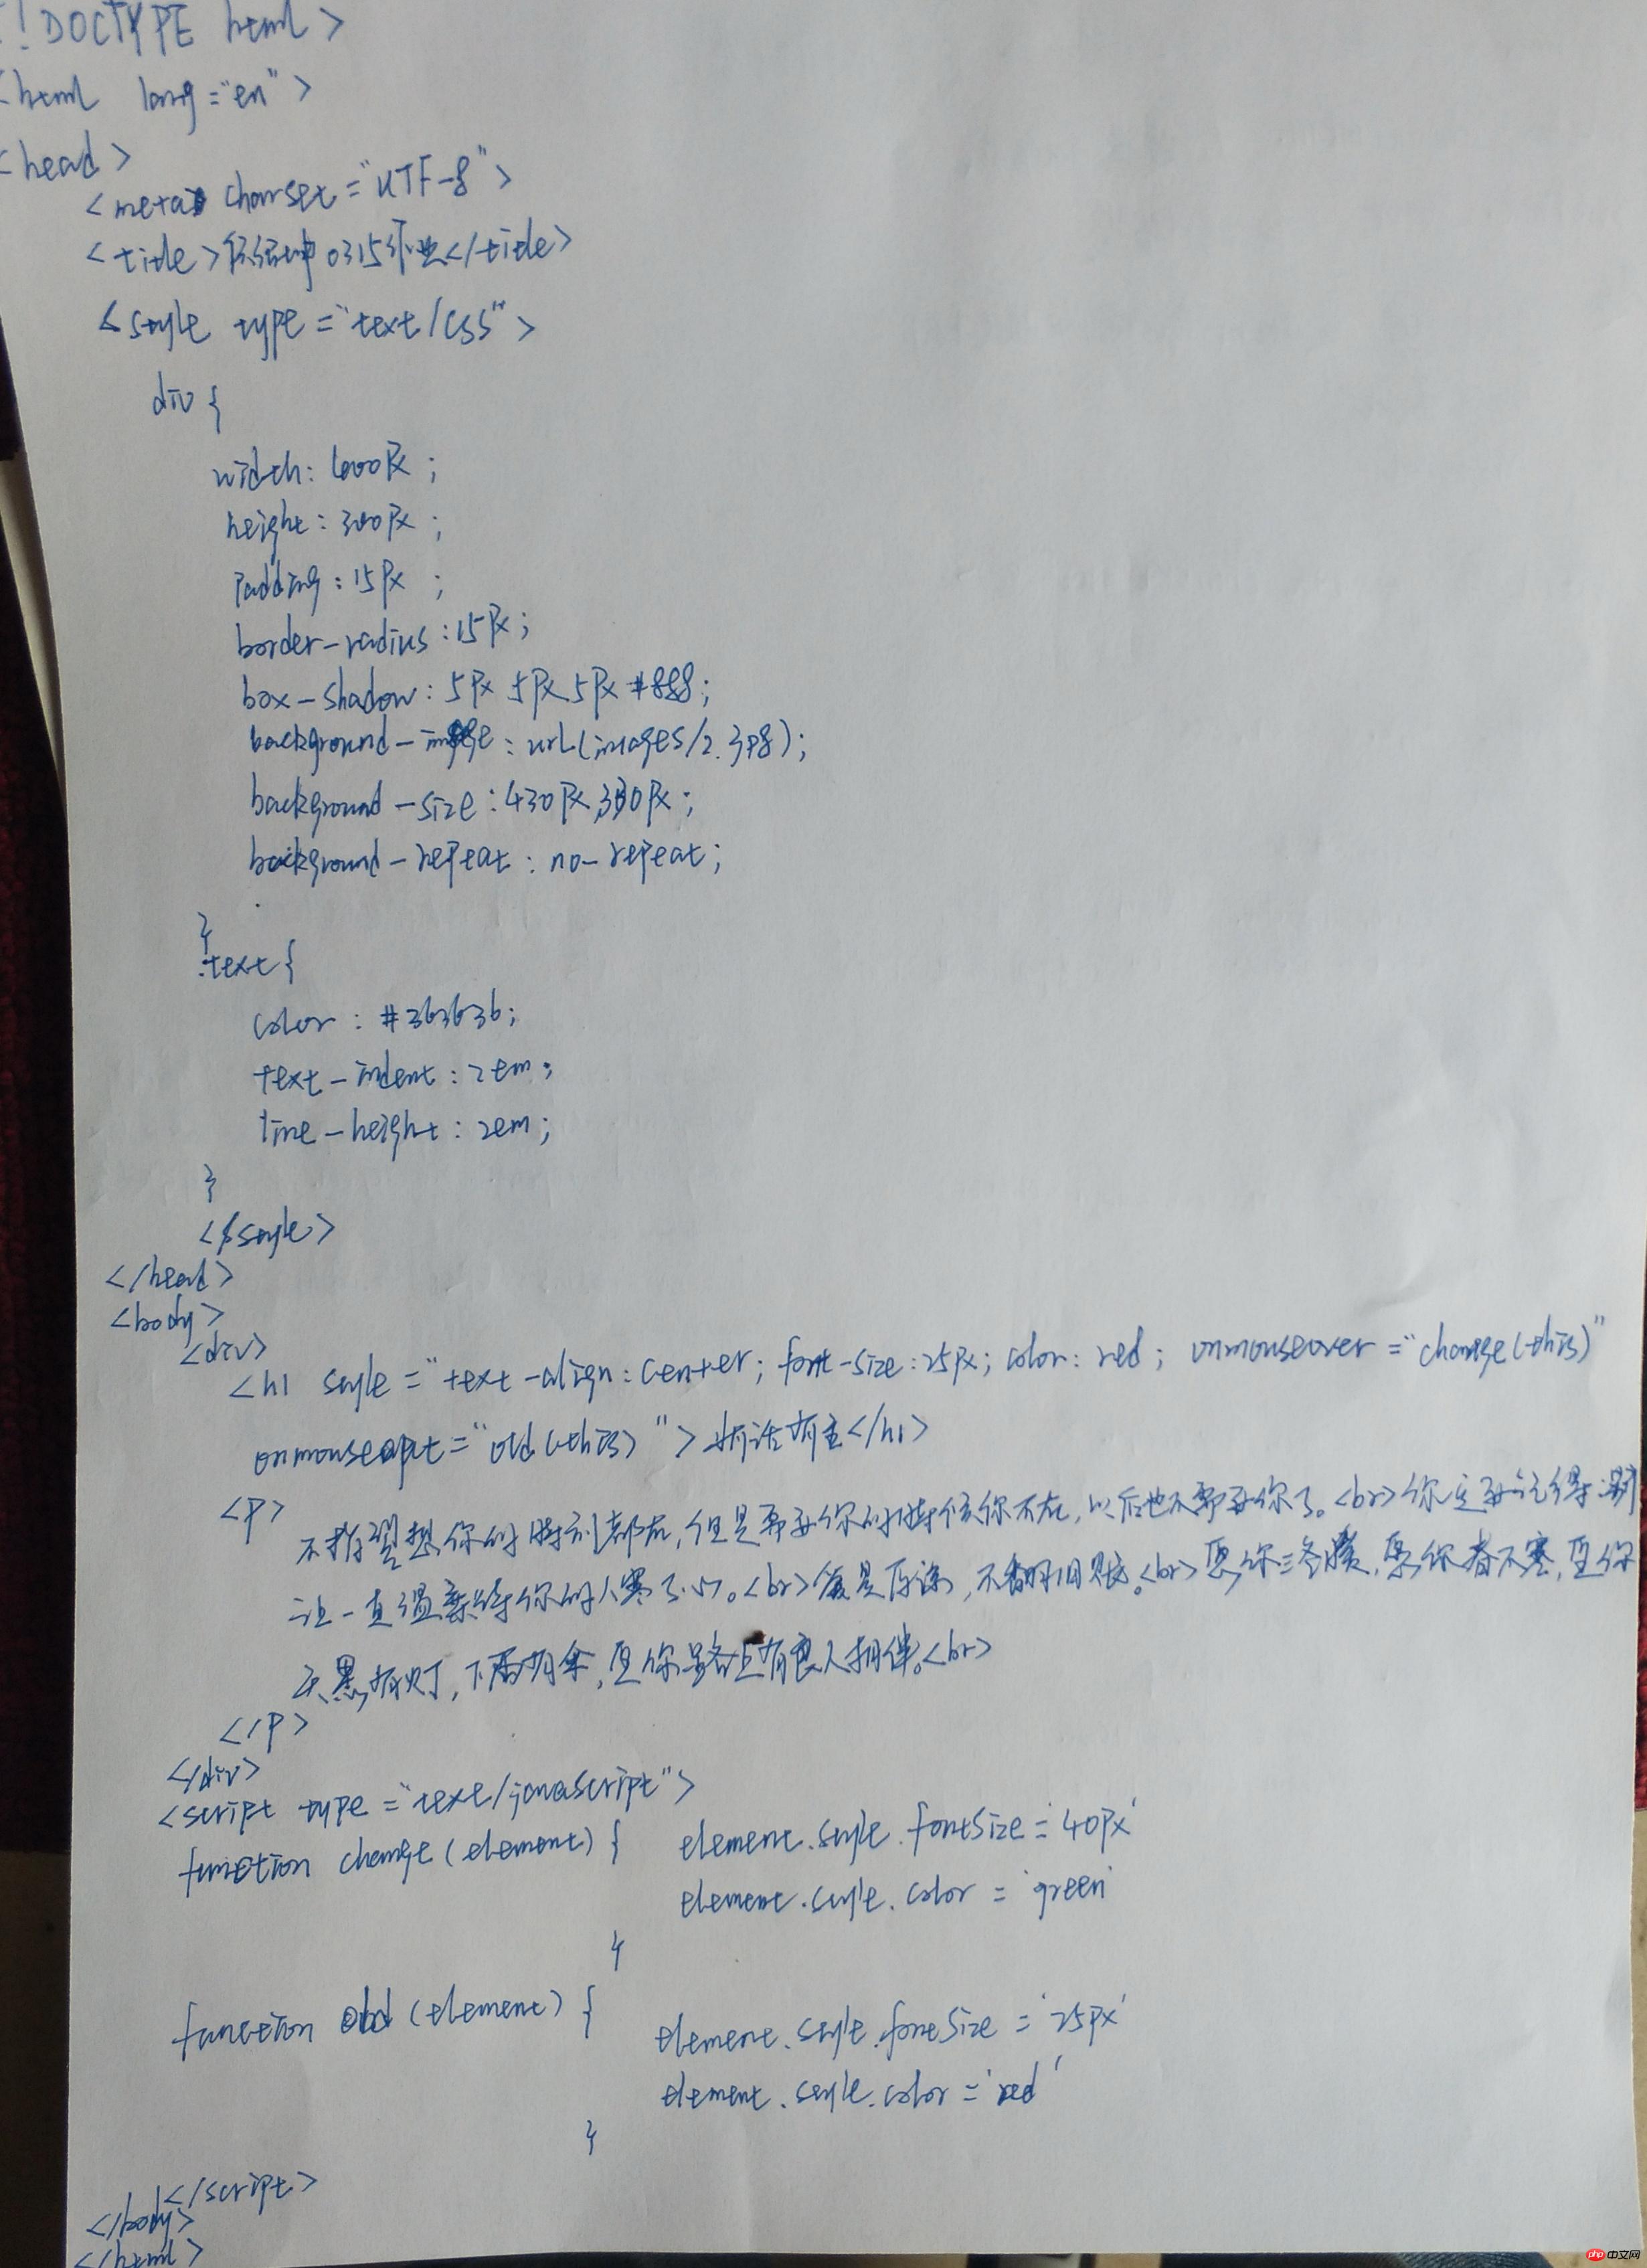 !DOCTYPE html>
<html lang="en">
<head>
<meta charset="UTF-8">
<title> 0315作业</title>
<style type="text/css">
div {
width: 600px ;
height: 300px ;
padding: 15px ;
border-radius: 15px;
box-shadow: 5px 5px 5px #888;
background-image: url(images/2.jpg);
background-size: 430px 330px;
background-repeat: no-repeat;
}
.text{
color: #363636;
text-indent: 2em;
line-height: 2em;
}
</style>
</head>
<body>
<div>
<h1 style="text-align: center; font-size: 25px; color: red; onmouseover="change(this)"
onmouseout="old(this)">情话</h1>
<p>
不指望想你的时刻都在,但是需要你的时候你不在,以后也不需要你了。<br>你一定要记得,别
让一直温柔待你的人寒了心。<br>原谅,不翻旧账。<br>愿你三冬暖,愿你春不寒,愿你
天黑有灯,下雨有伞,愿你路上有良人相伴。<br>
</p>
</div>
<script type="text/javascript">
function change(element) { element.style.fontSize='40px'
element.style.color='green'
}
function old(element) { element.style.fontSize='25px'
element.style.color='red'
}
</script>
</body>
</html>
php 中文网